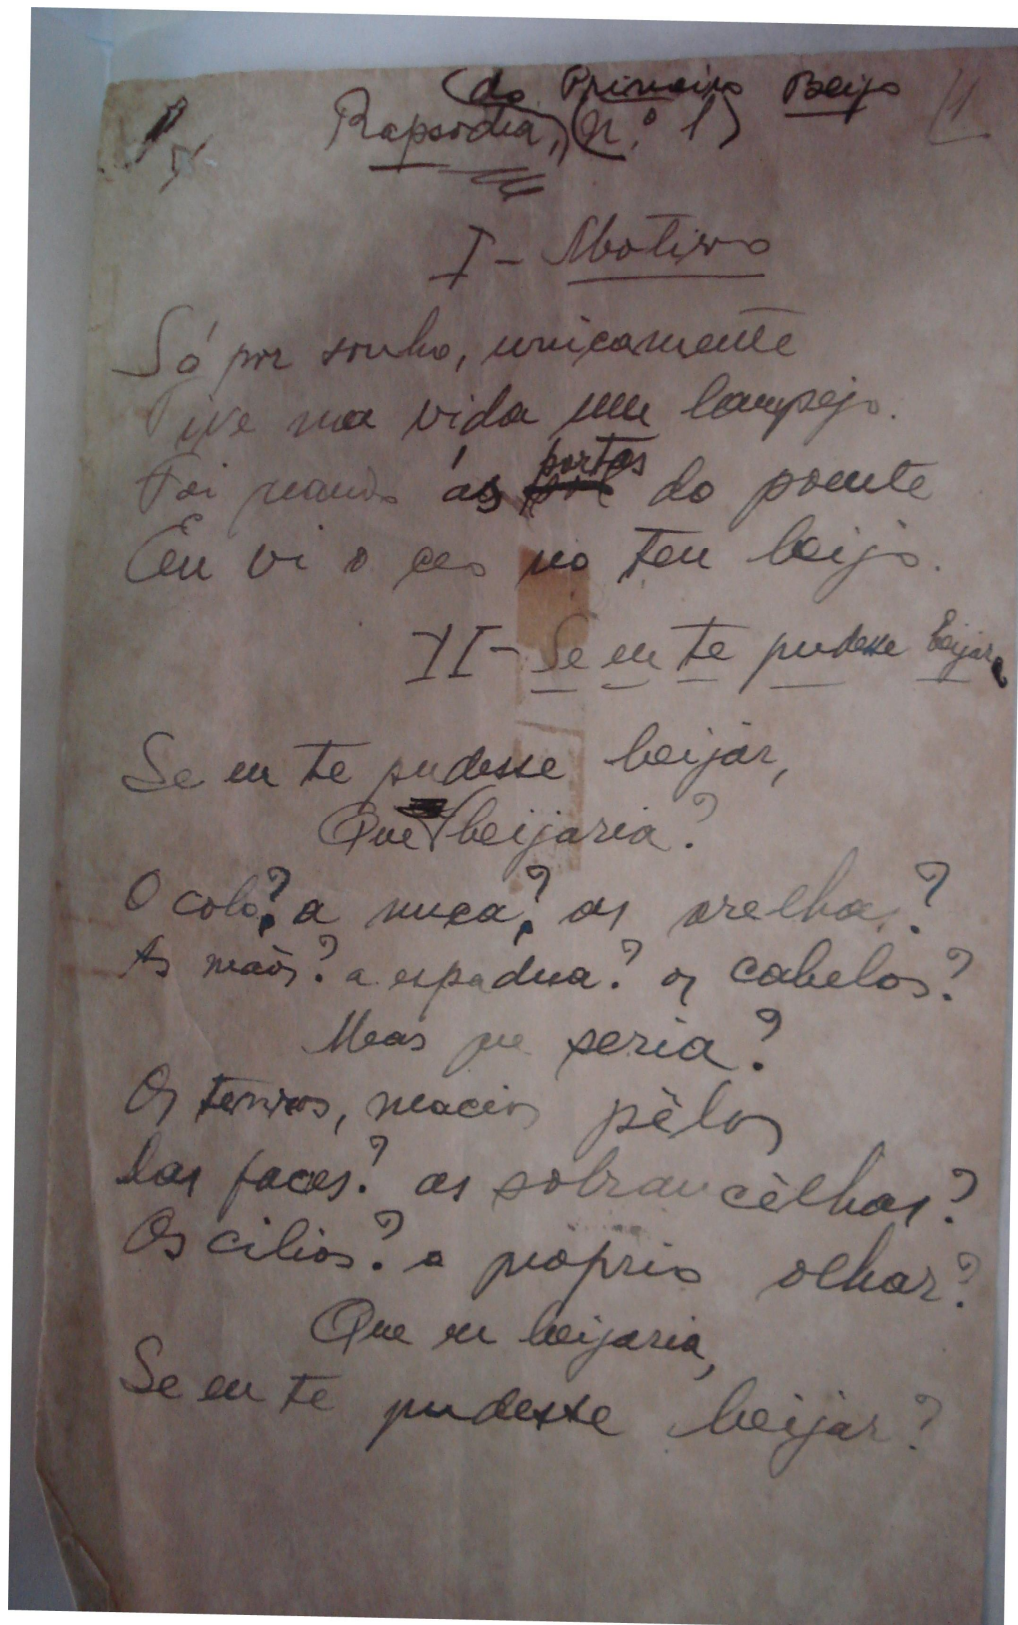 do Primeiro Beijo
Rapsodia, (n.º 1) (1
I - Motivo
Só por sonho, unicamente
Tive na vida um lampejo.
Foi quando ás portas do poente
Eu vi o ceo no teu beijo.
II - Se eu te pudesse beijar,
Se eu te pudesse beijar,
Que beijaria?
O colo? a nuca? as orelhas?
As mãos? a espadua? os cabelos?
Mas que seria?
Os tenros, macios pêlos
Das faces? as sobrancêlhas?
Os cilios? o proprio olhar?
Que eu beijaria,
Se eu te pudesse beijar?